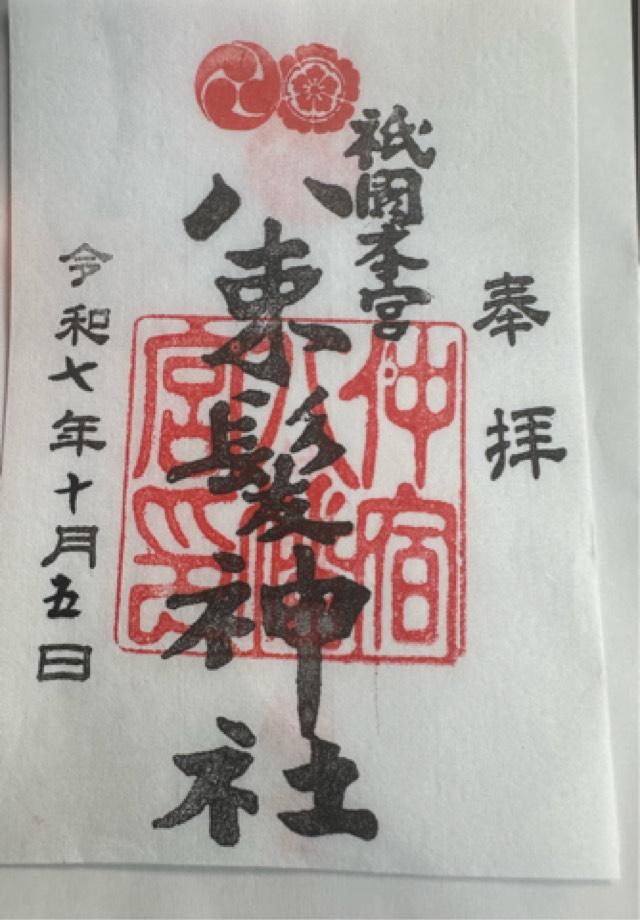 奉拝
祇園本宮
八束髪神社
仲宿八幡宮印
令和七年十月五日